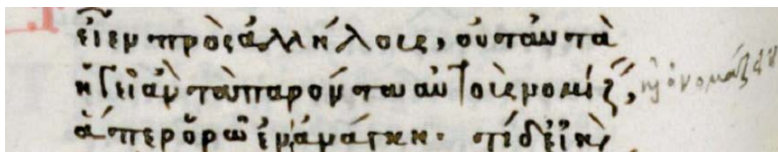 εἶεν πρὸς ἀλλήλους, οὐ ταῦτα
ἡγεῖ ἂν τὰ παρόντα αὐτοὺς νομίζειν, καὶ ὀνομάζειν
ἅπερ ὁρῶεν; ἀνάγκη· τί δ' εἰ καὶ